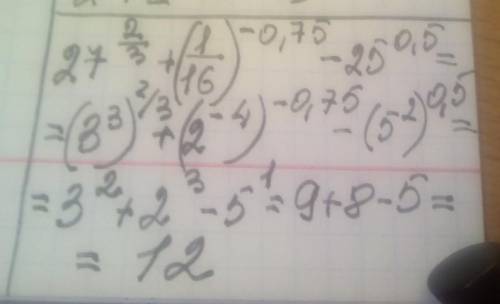 27^{2/3} + (1/16)^{-0,75} - 25^{0,5} =
= (3^3)^{2/3} + (2^{-4})^{-0,75} - (5^2)^{0,5} =
= 3^2 + 2^3 - 5^1 = 9 + 8 - 5 =
= 12